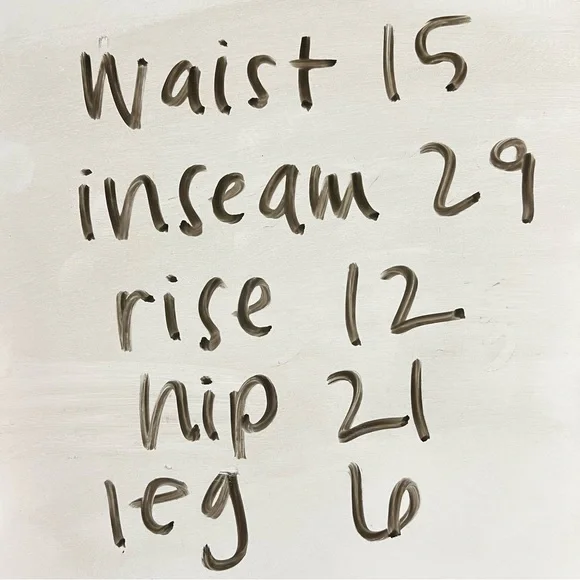 waist 15
inseam 29
rise 12
hip 21
leg 6